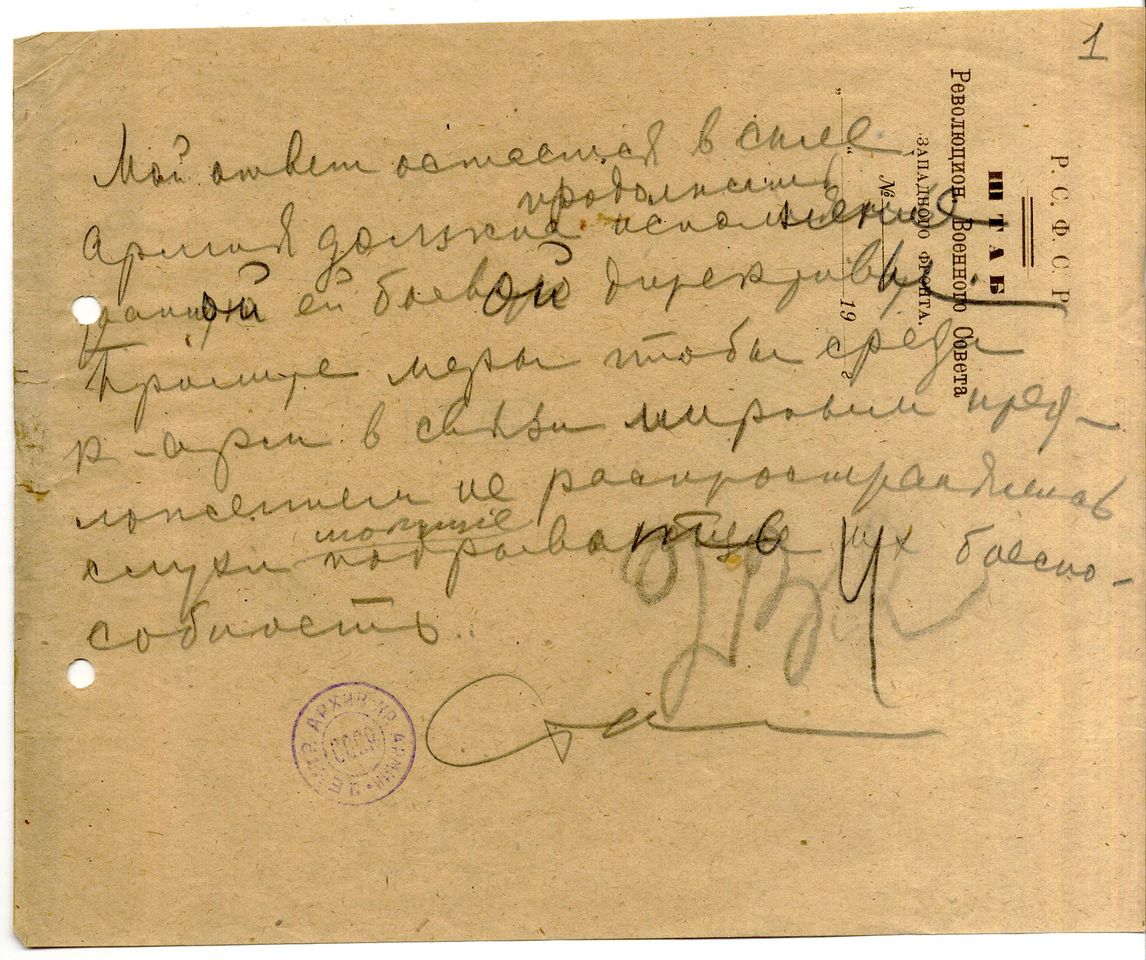 1
Р. С. Ф. С. Р
ШТАБ
Революцион. Военного Совета
ЗАПАДНОГО ФРОНТА.
№
19 г
Мой ответ остается в силе.
продолжать
Армия должна исполнение
данной ей боевой директивы.
Примите меры чтобы среди
кр-арм в связи мировым пред-
ложением не распространялись
слухи могущие
подрывать их боеспо-
собность.
ЦЕНТР. АРХИВ КР. АРМИИ
СССР